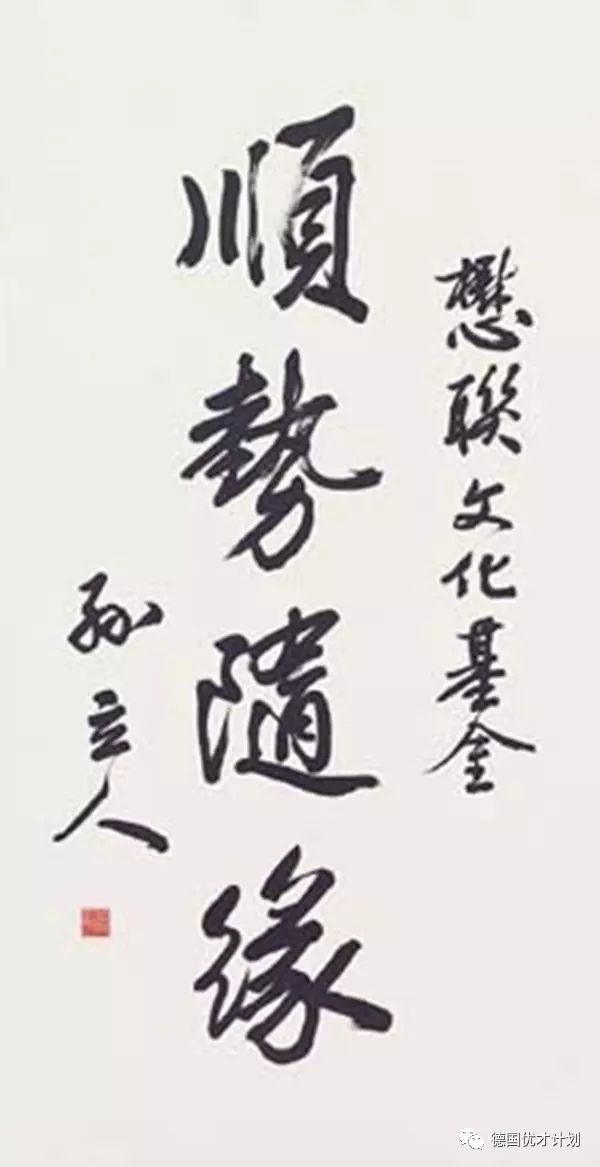 懋聯文化基金
順勢隨緣
孫立人
德国优才计划